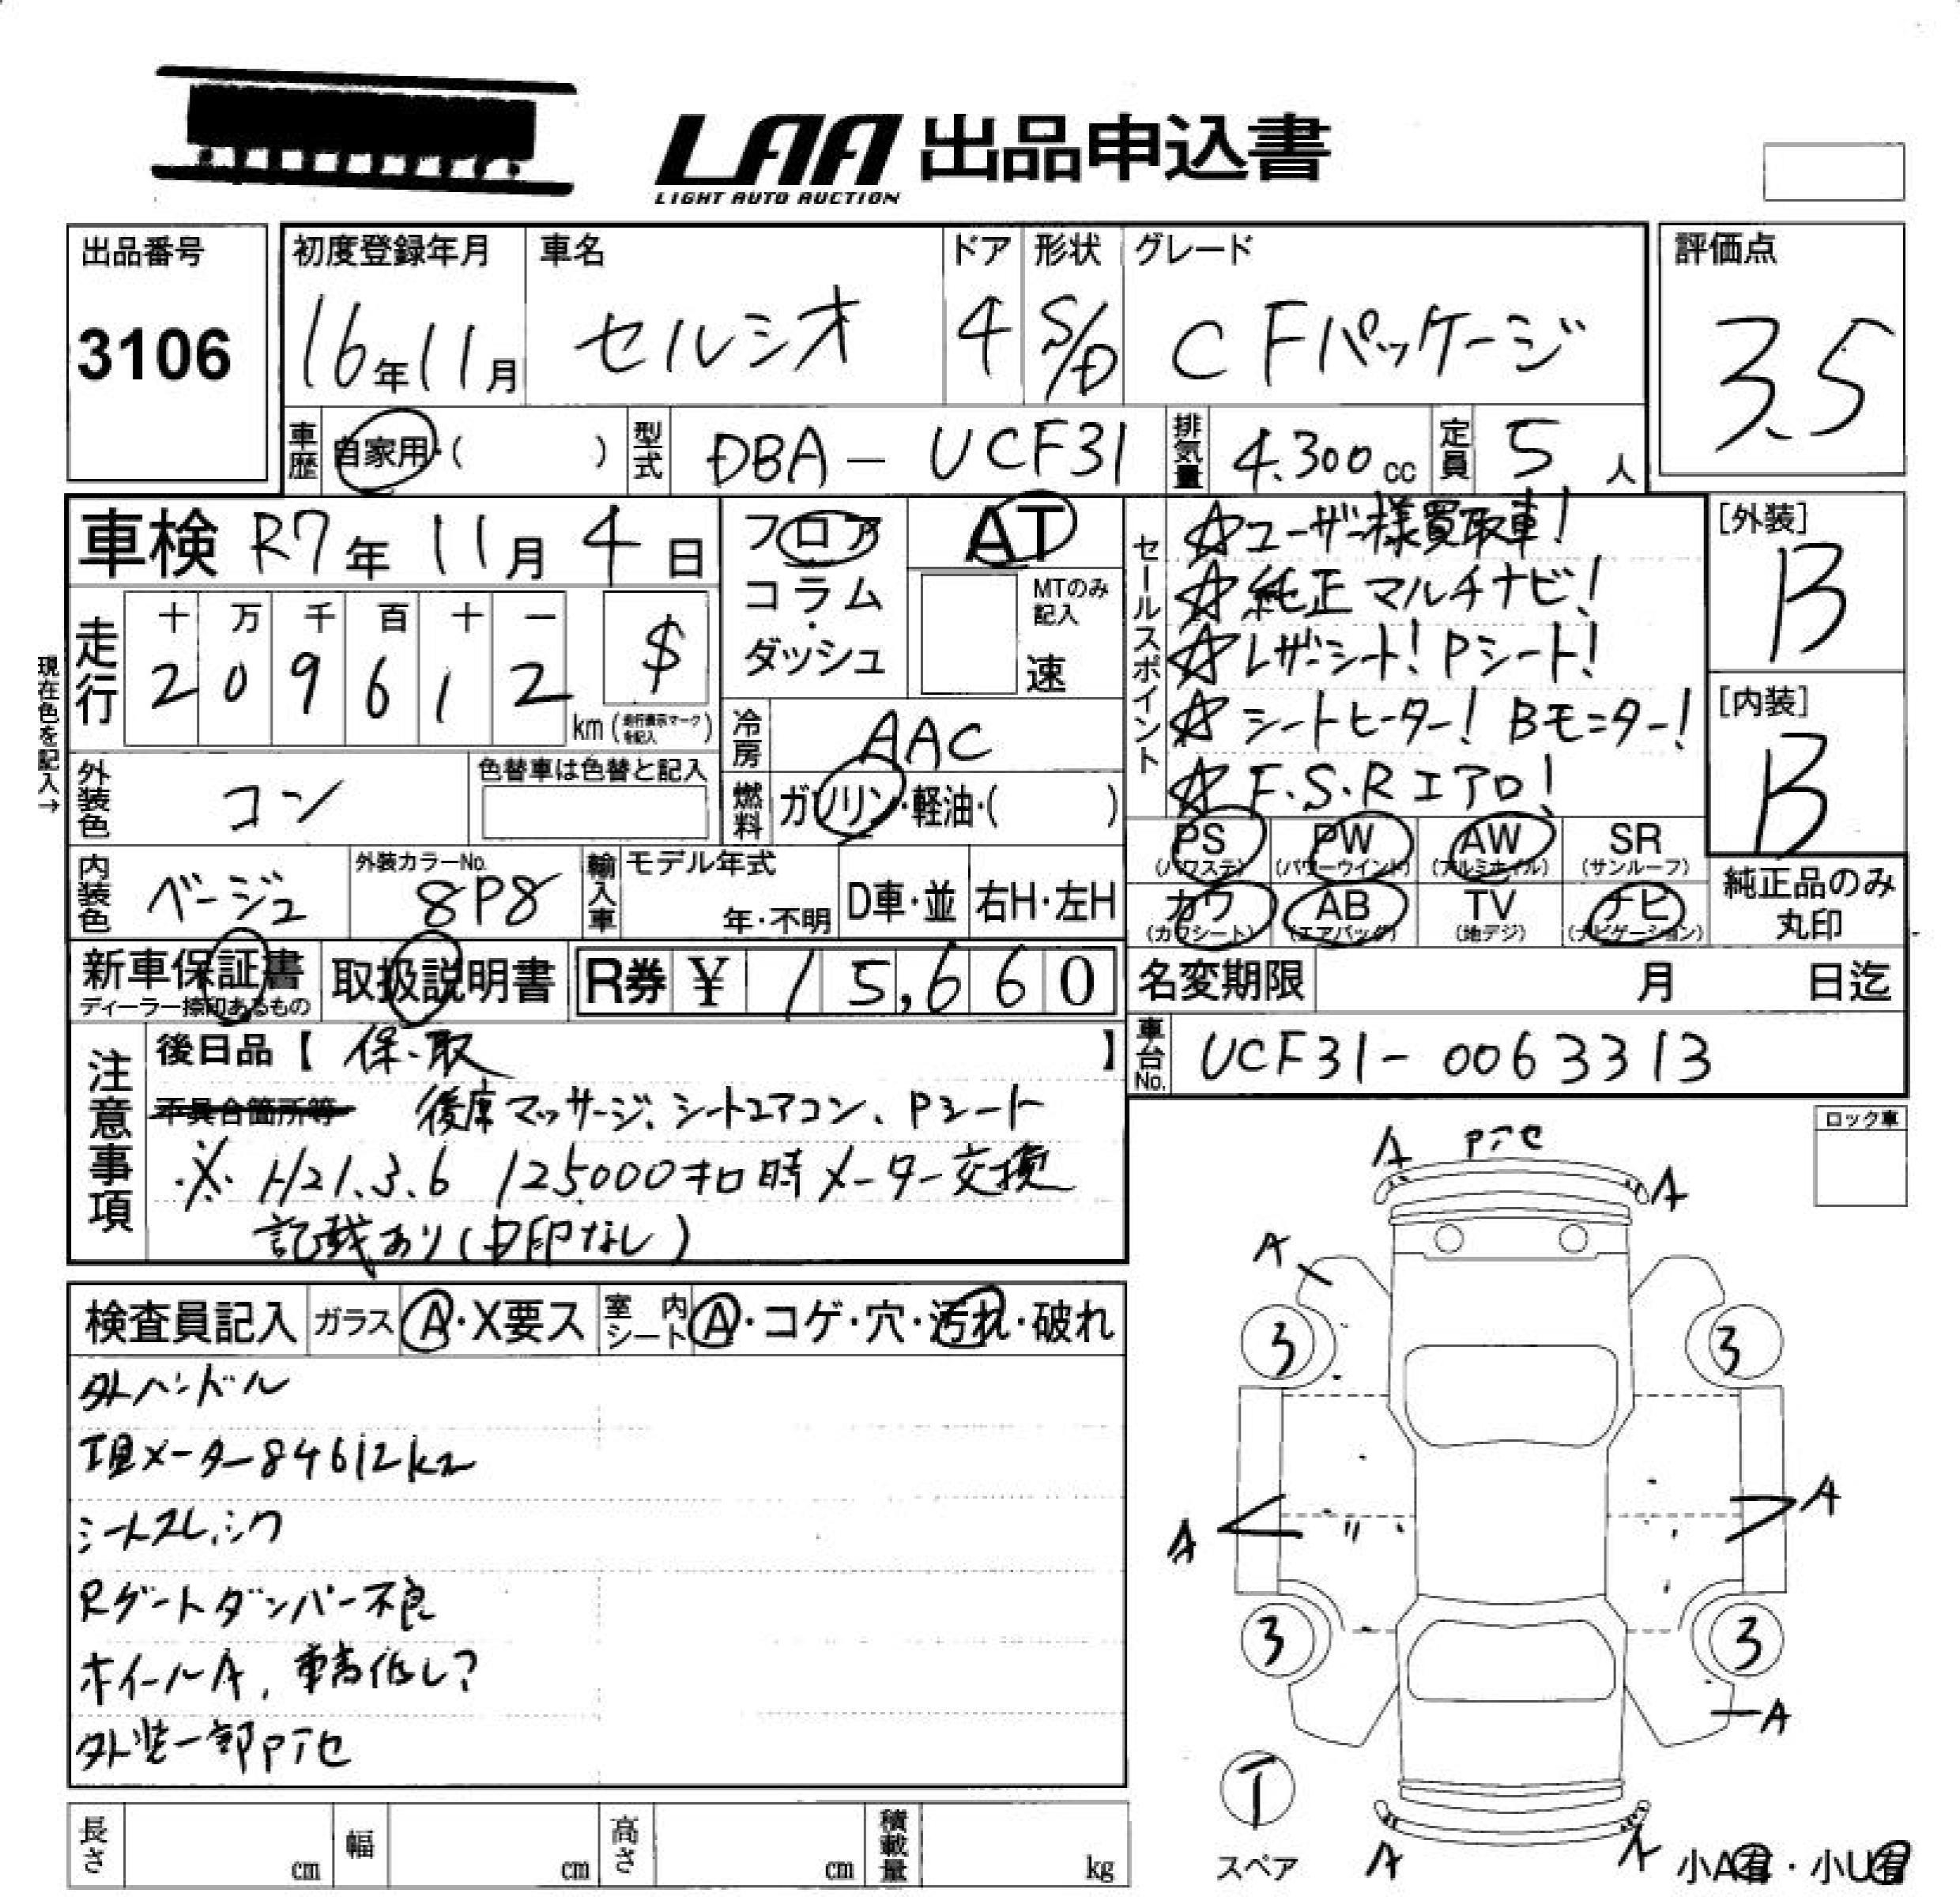 LAA 出品申込書
LIGHT AUTO AUCTION
出品番号
3106
初度登録年月
16年11月
車名
セルシオ
ドア
4
形状
S/D
グレード
C Fパッケージ
評価点
3.5
車歴
自家用・( )
型式
DBA-UCF31
排気量
4.300cc
定員
5人
車検 R7年11月4日
走行
十 万 千 百 十 一
2 0 9 6 1 2
$
km (走行表示マークを記入)
現在色を記入→
外装色
コン
色替車は色替と記入
内装色
ベージュ
外装カラーNo.
8P8
輸入車
モデル年式
年・不明
D車・並
右H・左H
フロア
・
コラム
・
ダッシュ
AT
MTのみ記入
速
冷房
AAC
燃料
ガソリン・軽油・( )
セールスポイント
☆ユーザー様買取車!
☆純正マルチナビ!
☆レザーシート! Pシート!
☆シートヒーター! Bモニター!
☆F.S.Rエアロ!
[外装]
B
[内装]
B
PS (パワステ)
PW (パワーウインド)
AW (アルミホイル)
SR (サンルーフ)
カワ (カワシート)
AB (エアバッグ)
TV (地デジ)
ナビ (ナビゲーション)
純正品のみ
丸印
新車保証書
ディーラー捺印あるもの
取扱説明書
R券 ¥ 15,660
名変期限 月 日迄
車台No.
UCF31-0063313
注意事項
後日品【 保、取 】
不具合箇所等 後席マッサージ、シートエアコン、Pシート
※ H21.3.6 125000キロ時メーター交換
記載あり(日印なし)
検査員記入
ガラス
A・X要ス
室内シート
A・コゲ・穴・汚れ・破れ
外ハンドル
現メーター84612km
シートスレ、シワ
Rゲートダンパー不良
ホイールA、車高低し?
外装一部Pテセ
長さ cm
幅 cm
高さ cm
積載量 kg
ロック車
A Pテセ A
A
3 3
A A
3 3
A
T
スペア
A A
小A有・小U有